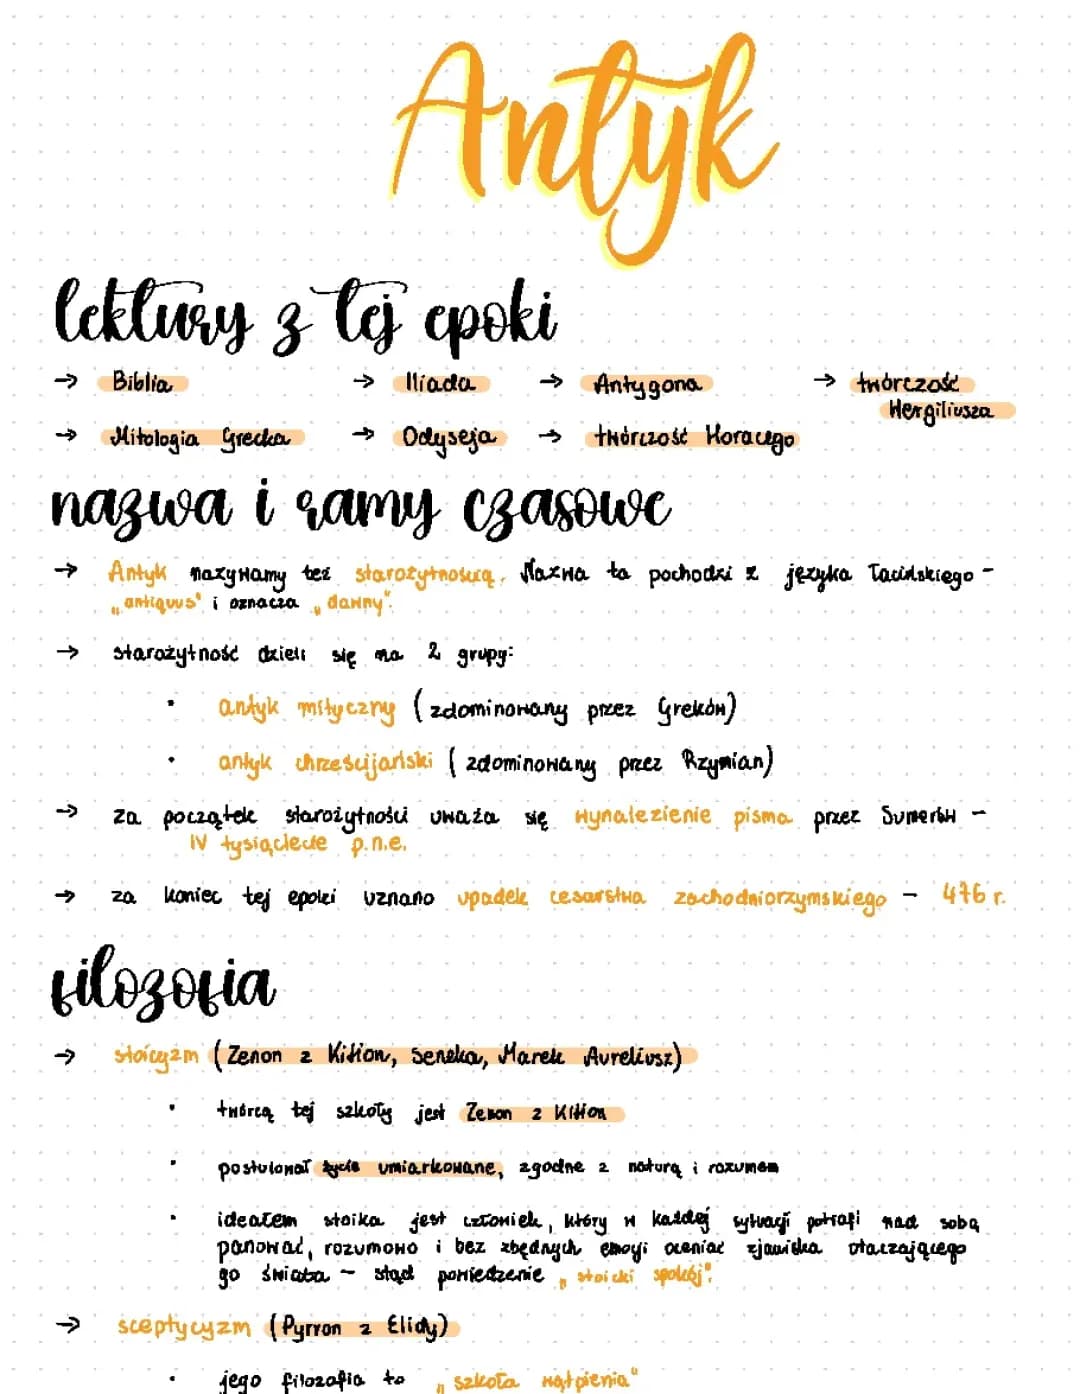 Antyk
lektury z tej epoki
→ Biblia → Iliada → Antygona → twórczość
Wergiliusza
→ Mitologia Grecka → Odyseja → twórczość Horacego
nazwa i ramy czasowe
→ Antyk nazywamy też starożytnością. Nazwa ta pochodzi z języka łacińskiego -
„antiquus" i oznacza „dawny".
→ starożytność dzieli się na 2 grupy:
• antyk mityczny (zdominowany przez Greków)
• antyk chrześcijański (zdominowany przez Rzymian)
→ za początek starożytności uważa się wynalezienie pisma przez Sumerów -
IV tysiąclecie p.n.e.
→ za koniec tej epoki uznano upadek cesarstwa zachodniorzymskiego - 476 r.
filozofia
→ stoicyzm (Zenon z Kition, Seneka, Marek Aureliusz)
• twórcą tej szkoły jest Zenon z Kition
• postulował życie umiarkowane, zgodne z naturą i rozumem
• ideałem stoika jest człowiek, który w każdej sytuacji potrafi nad sobą
panować, rozumowo i bez zbędnych emocji oceniać zjawiska otaczającego
go świata - stąd powiedzenie „stoicki spokój".
→ sceptycyzm (Pyrron z Elidy)
• jego filozofia to „szkoła wątpienia"